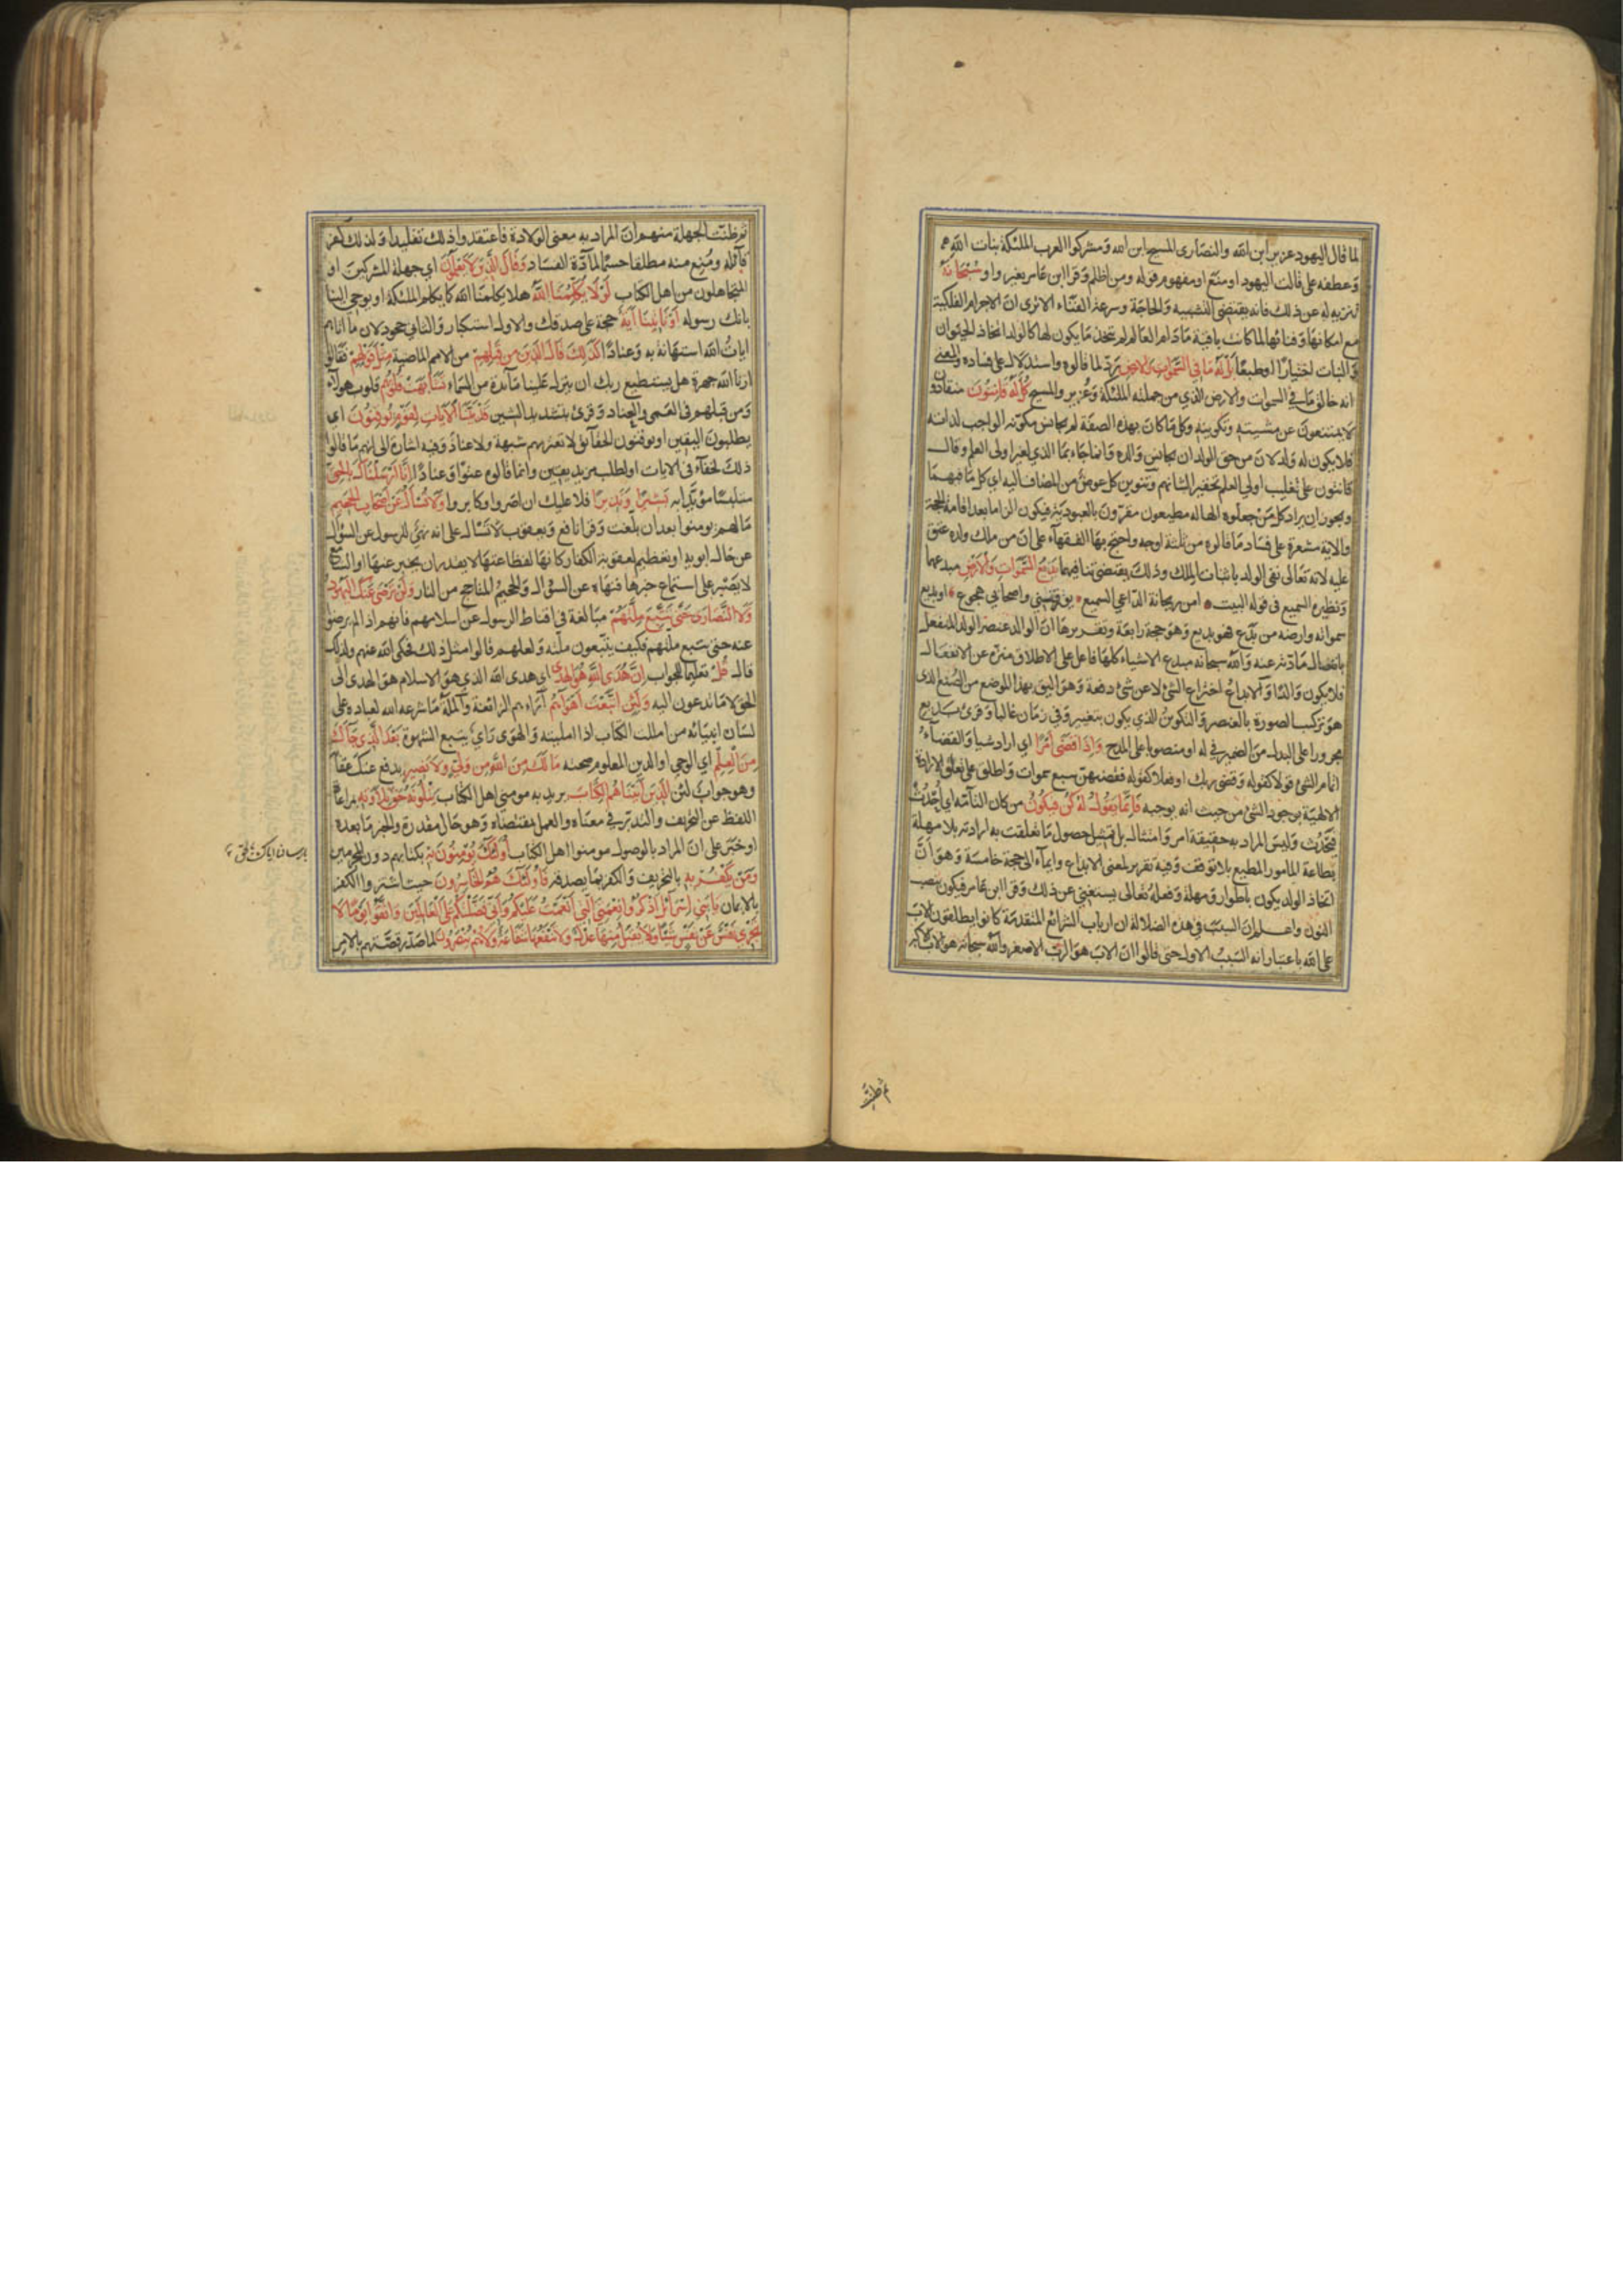 لما قال اليهود عزير ابن الله والنصارى المسيح ابن الله ومشركوا العرب الملئكة بنات الله
وعطفه على قالت اليهود او منع او مفهوم قوله ومن اظلم وقرا ابن عامر بغير واو سُبْحَانَهُ
تنزيه له عن ذلك فانه يقتضى التشبيه والحاجة وسرعة الفناء الا ترى ان الاجرام الفلكية
مع امكانها وفنائها لما كانت باقية ما دام العالم لم تتخذ ما يكون لها كالولد اتخاذ الحيوان
والنبات اختيارًا او طبعًا بَلْ لَهُ مَا فِي السَّمٰوَاتِ وَالْاَرْضِ ردّ لما قالوه واستدلال على فساده والمعنى
انه خالق ما في السموات والارض الذي من جملته الملئكة وعُزير والمسيح كُلٌّ لَهُ قَانِتُونَ منقادون
لا يمتنعون عن مشيته وتكوينه وكل ما كان بهذه الصفة لم يجانس مكوّنه الواجب لذاته
فلا يكون له ولد لان من حق الولد ان يجانس والده وانما جاء بما الذي لغير اولى العلم وقال
قانتون على تغليب اولي العلم تحقيرا لشانهم وتنوين كل عوض من المضاف اليه اي كل ما فيهما
ويجوز ان يراد كل من جعلوه الها له مطيعون مقرّون بالعبودية فيكون الزاما بعد اقامة الحجة
والاية مشعرة على فساد ما قالوه من ثلثة اوجه واحتج بها الفقهآء على ان من ملك ولده عتق
عليه لانه تعالى نفى الولد باثبات الملك وذلك يقتضى تنافيهما بَدِيعُ السَّمٰوَاتِ وَالْاَرْضِ مبدعهما
ونظيره السميع فى قوله البيت امن ريحانة الدّاعي السميع يؤرقني واصحابي هجوع او بديع
سمواته وارضه من بَدُع فهو بديع وهو حجة رابعة وتقريرها ان الوالد عنصر الولد المنفعل
بانفصال مادّته عنه والله سبحانه مبدع الاشياء كلها فاعل على الاطلاق منزه عن الانفعال
فلا يكون والدًا والابداع اختراع الشئ لا عن شئ دفعة وهو اليق بهذا الموضع من الصُنع الذى
هو تركيب الصورة بالعنصر والتكوين الذي يكون بتغيير وفي زمان غالبا وقرئ بديع
مجرورا على البدل من الضمير في له او منصوبا على المدح وَاِذَا قَضٰى اَمْرًا اي اراد شيا والقضاء
اتمام الشئ قولا كقوله وقضى ربك او فعلا كقوله فقضيهن سبع سموات واطلق على تعلق الارادة
الالهية بوجود الشئ من حيث انه يوجبه فَاِنَّمَا يَقُولُ لَهُ كُنْ فَيَكُونُ من كان التآمّة اي اُحْدُثْ
فيَحْدُث وليس المراد به حقيقة امر وامتثال بل تمثيل حصول ما تعلقت به ارادته بلا مهلة
بطاعة المامور المطيع بلا توقف وفيه تقرير لمعنى الابداع وايمآء الى حجة خامسة وهو انّ
اتخاذ الولد يكون باطوار ومهلة وفعله تعالى يستغنى عن ذلك وقرا ابن عامر فيكون بنصب
النون واعلم ان السبب في هذه الضلالة ان ارباب الشرائع المتقدمة كانوا يطلقون الاب
على الله باعتبار انه السبب الاول حتى قالوا ان الاب هو الرب الاصغر والله سبحانه هو الاب الاكبر
ثم ظنت
ثم ظنت الجهلة منهم ان المراد به معنى الولادة فاعتقدوا ذلك تقليدا ولذلك كفر
قآئله ومُنِع منه مطلقا حسمًا لمادّة الفساد وَقَالَ الَّذِينَ لَا يَعْلَمُونَ اي جهلة المشركين او
المتجاهلون من اهل الكتاب لَوْلَا يُكَلِّمُنَا اللّٰهُ هلا يكلمنا الله كما يكلم الملئكة او يوحى الينا
بانك رسوله اَوْ تَأْتِينَا اٰيَةٌ حجة على صدقك والاول استكبار والثاني جحود لان ما اتاهم
ايات الله استهانة به وعنادًا كَذٰلِكَ قَالَ الَّذِينَ مِنْ قَبْلِهِمْ من الامم الماضية مِثْلَ قَوْلِهِمْ فقالوا
ارنا الله جهرة هل يستطيع ربك ان ينزل علينا مآئدة من السماء تَشَابَهَتْ قُلُوبُهُمْ قلوب هولآء
ومن قبلهم فى العمى والعناد وقرئ بتشديد الشين قَدْ بَيَّنَّا الْاٰيَاتِ لِقَوْمٍ يُوقِنُونَ اي
يطلبون اليقين او يوقنون الحقآئق لا تعتريهم شبهة ولا عناد وفيه اشارة الى انهم ما قالوا
ذلك لخفآء فى الايات او لطلب مزيد يقين وانما قالوه عتوّا وعنادًا اِنَّا اَرْسَلْنَاكَ بِالْحَقِّ
متلبسًا مؤيّدًا به بَشِيرًا وَنَذِيرًا فلا عليك ان اصّروا وكابروا وَلَا تُسْاَلُ عَنْ اَصْحَابِ الْجَحِيمِ
ما لهم لم يومنوا بعد ان بلّغت وقرا نافع ويعقوب لا تَسْال على انه نهيٌ للرسول عن السؤال
عن حال ابويه او تعظيم لعقوبة الكفار كانها لفظاعتها لا يقدر ان يخبر عنها او السامع
لا يصبر على استماع خبرها فنهاه عن السؤال والجحيم المتاجج من النار وَلَنْ تَرْضٰى عَنْكَ الْيَهُودُ
وَلَا النَّصَارٰى حَتّٰى تَتَّبِعَ مِلَّتَهُمْ مبالغة في اقناط الرسول عن اسلامهم فانهم اذا لم يرضوا
عنه حتى يتبع ملتهم فكيف يتّبعون ملّته ولعلهم قالوا مثل ذلك فحكى الله عنهم ولذلك
قال قُلْ تعليمًا للجواب اِنَّ هُدَى اللّٰهِ هُوَ الْهُدٰى اي هدى الله الذي هو الاسلام هو الهدى الى
الحق لا ما تدعون اليه وَلَئِنِ اتَّبَعْتَ اَهْوَآءَهُمْ آراءهم الزائغة والملّة ما شرعه الله لعباده على
لسان انبيائه من امللت الكتاب اذا امليته والهوى راي يتبع الشهوة بَعْدَ الَّذِي جَآءَكَ
مِنَ الْعِلْمِ اي الوحي او الدين المعلوم صحته مَا لَكَ مِنَ اللّٰهِ مِنْ وَلِيٍّ وَلَا نَصِيرٍ يدفع عنك عقابه
وهو جواب لئن الَّذِينَ اٰتَيْنَاهُمُ الْكِتَابَ يريد به مومني اهل الكتاب يَتْلُونَهُ حَقَّ تِلَاوَتِهِ بمراعاة
اللفظ عن التحريف والتدبّر في معناه والعمل بمقتضاه وهو حال مقدرة والخبر ما بعده
او خبر على ان المراد بالموصول مومنوا اهل الكتاب اُولٰئِكَ يُؤْمِنُونَ بِهِ بكتابهم دون المحرفين
وَمَنْ يَكْفُرْ بِهِ بالتحريف والكفر بما يصدقه فَاُولٰئِكَ هُمُ الْخَاسِرُونَ حيث اشتروا الكفر
بالايمان يَا بَنِي اِسْرَآئِلَ اذْكُرُوا نِعْمَتِيَ الَّتِي اَنْعَمْتُ عَلَيْكُمْ وَاَنِّي فَضَّلْتُكُمْ عَلَى الْعَالَمِينَ وَاتَّقُوا يَوْمًا لَا
تَجْزِي نَفْسٌ عَنْ نَفْسٍ شَيْئًا وَلَا يُقْبَلُ مِنْهَا عَدْلٌ وَلَا تَنْفَعُهَا شَفَاعَةٌ وَلَا هُمْ يُنْصَرُونَ لما صدّر قصّتهم بالامر